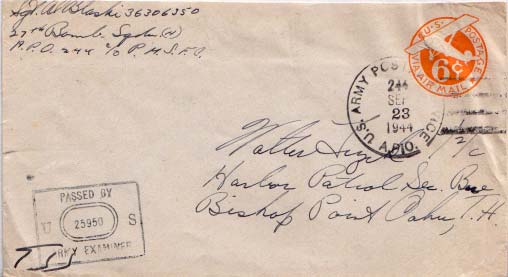 Sgt. W. Blaski 36306350
27th Bomb. Sqdn (H)
A.P.O. 244 c/o P.M. S.F.C.
U.S. POSTAGE
6¢
VIA AIR MAIL
U.S. ARMY POSTAL SERVICE
244
SEP
23
1944
A.P.O.
Walter 1/c
Harbor Patrol Sec.
Bishop Point Oahu, T.H.
PASSED BY
U 25950 S
ARMY EXAMINER